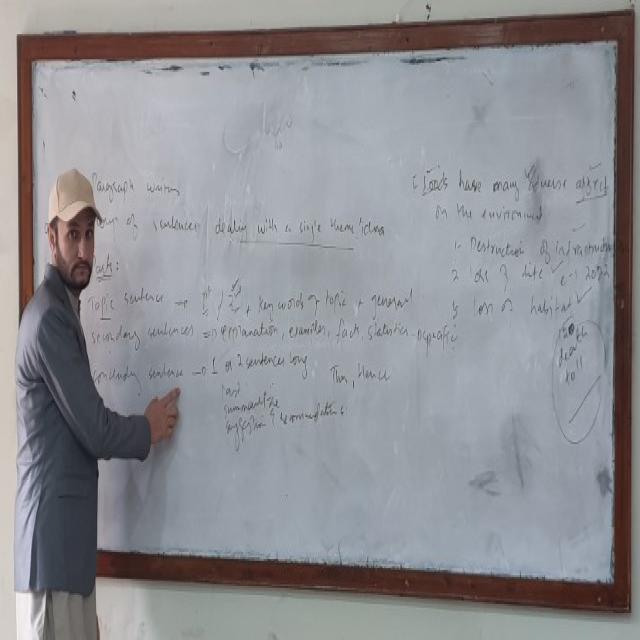 Paragraph writing
group of sentences dealing with a single theme/idea
Parts:
Topic sentence → 1st / 2nd + key words of topic + general
secondary sentences → explanation, examples, fact, statistics, specific
concluding sentence → 1 or 2 sentences long Thus, Hence
last
summarize
suggestion / recommendations
have many adverse effects
on the environment
1. Destruction of infrastructure
2 loss of life 2022
3 loss of habitat
death
toll